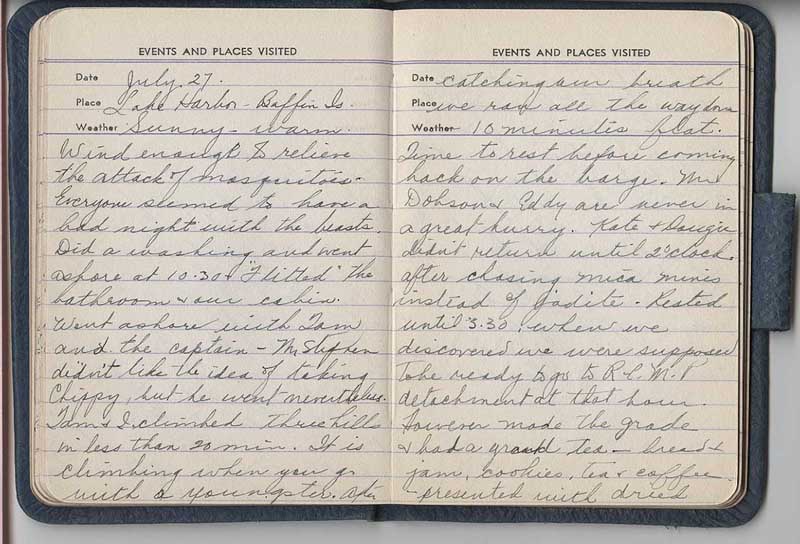 EVENTS AND PLACES VISITED
Date July 27.
Place Lake Harbor - Baffin Is.
Weather Sunny - warm.
Wind enough to relieve
the attack of mosquitoes -
Everyone seemed to have a
bad night with the beasts.
Did a washing and went
ashore at 10.30 & "Flitted" the
bathroom & our cabin.
Went ashore with Tam
and the captain - Mr Stephen
didn't like the idea of taking
Chippy, but he went nevertheless.
Tam & I climbed three hills
in less than 20 min. It is
climbing when you go
with a youngster. After
EVENTS AND PLACES VISITED
Date catching our breath
Place we ran all the way down
Weather 10 minutes flat.
Time to rest before coming
back on the barge. Mr
Dobson & Eddy are never in
a great hurry. Kate & Dougie
didn't return until 2 o'clock.
after chasing mica mines
instead of jadite. Rested
until 3.30 : when we
discovered we were supposed
to be ready to go to R.C.M.P
detachment at that hour.
However made the grade
& had a grand tea - bread &
jam, cookies, tea & coffee.
- presented with dried